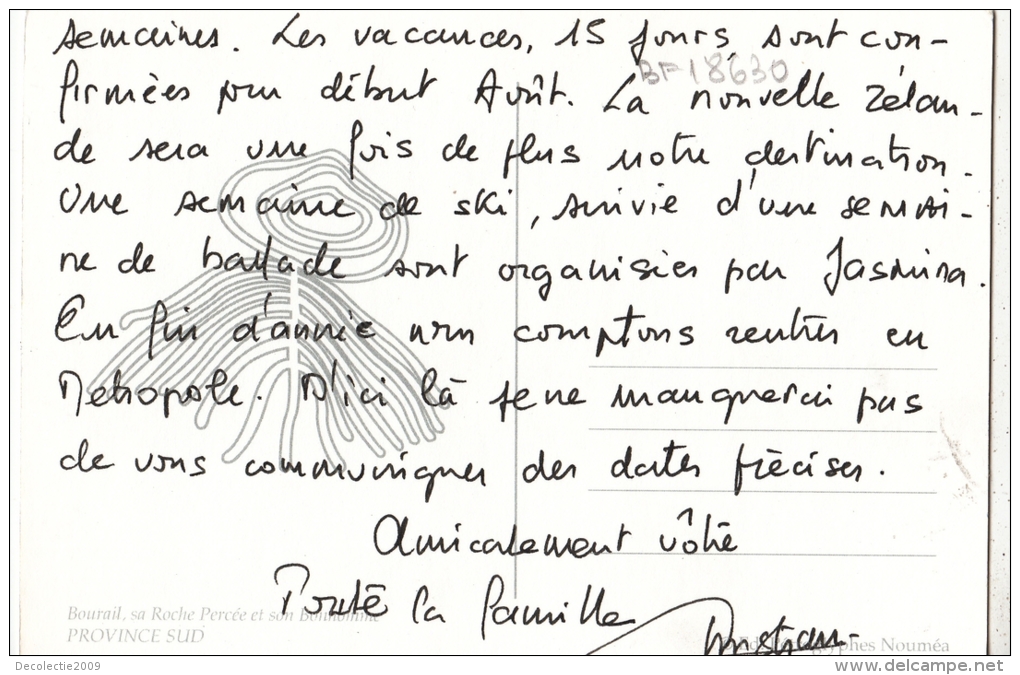 semaines. Les vacances, 15 jours, sont con-
BF18630
firmées pour début Août. La nouvelle Zélan-
de sera une fois de plus notre destination.
Une semaine de ski, suivie d'une semai-
ne de ballade sont organisées par Jasmina.
En fin d'année nous comptons rentrer en
Metropole. D'ici là je ne manquerai pas
de vous communiquer des dates précises.
Amicalement vôtre
Toute la famille
Bourail, sa Roche Percée et son Bonhomme
PROVINCE SUD
Nouméa
Decolectie2009
www.delcampe.net